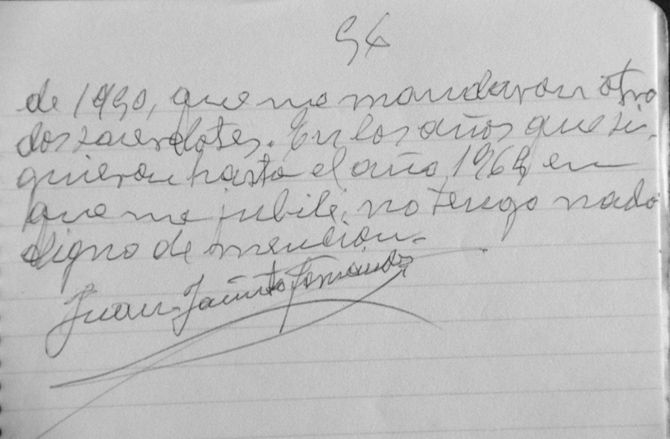 94
de 1950, que no mandaron otro
dos sacerdotes. En los años que si-
guieron hasta el año 1969, en
que me jubilé, no tengo nada
digno de mención.
Juan Jacinto Fernández